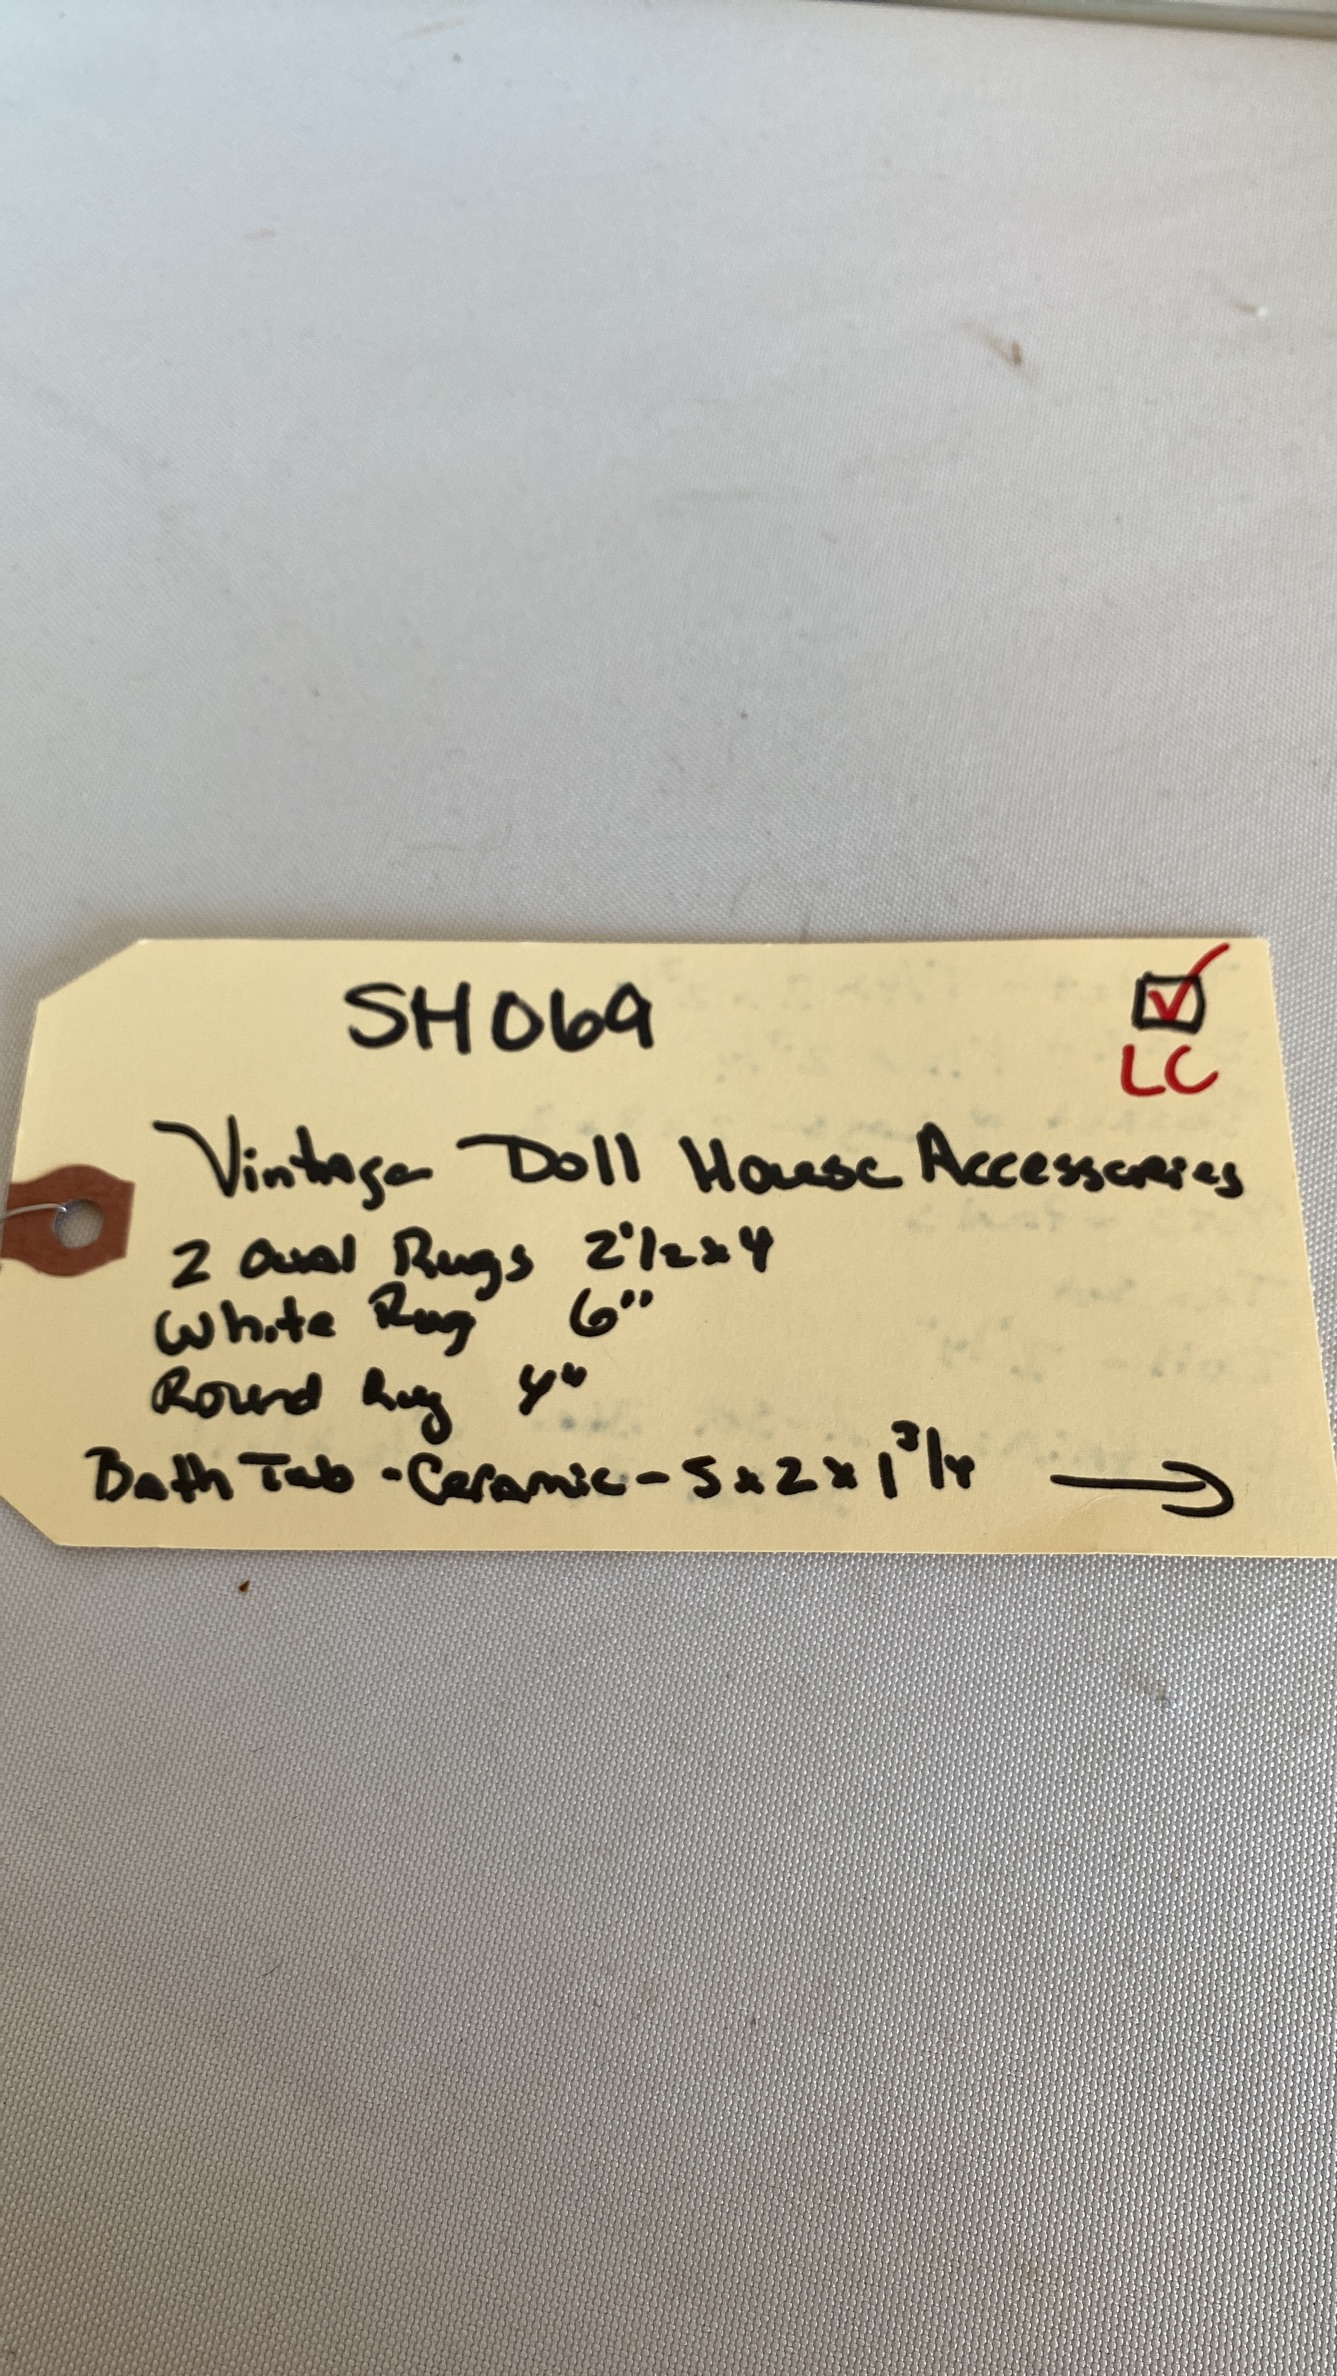 SH069
LC
Vintage Doll House Accessories
2 Oval Rugs 2 1/2 x 4
White Rug 6"
Round Rug 4"
Bath Tub - Ceramic - 5 x 2 x 1 3/4